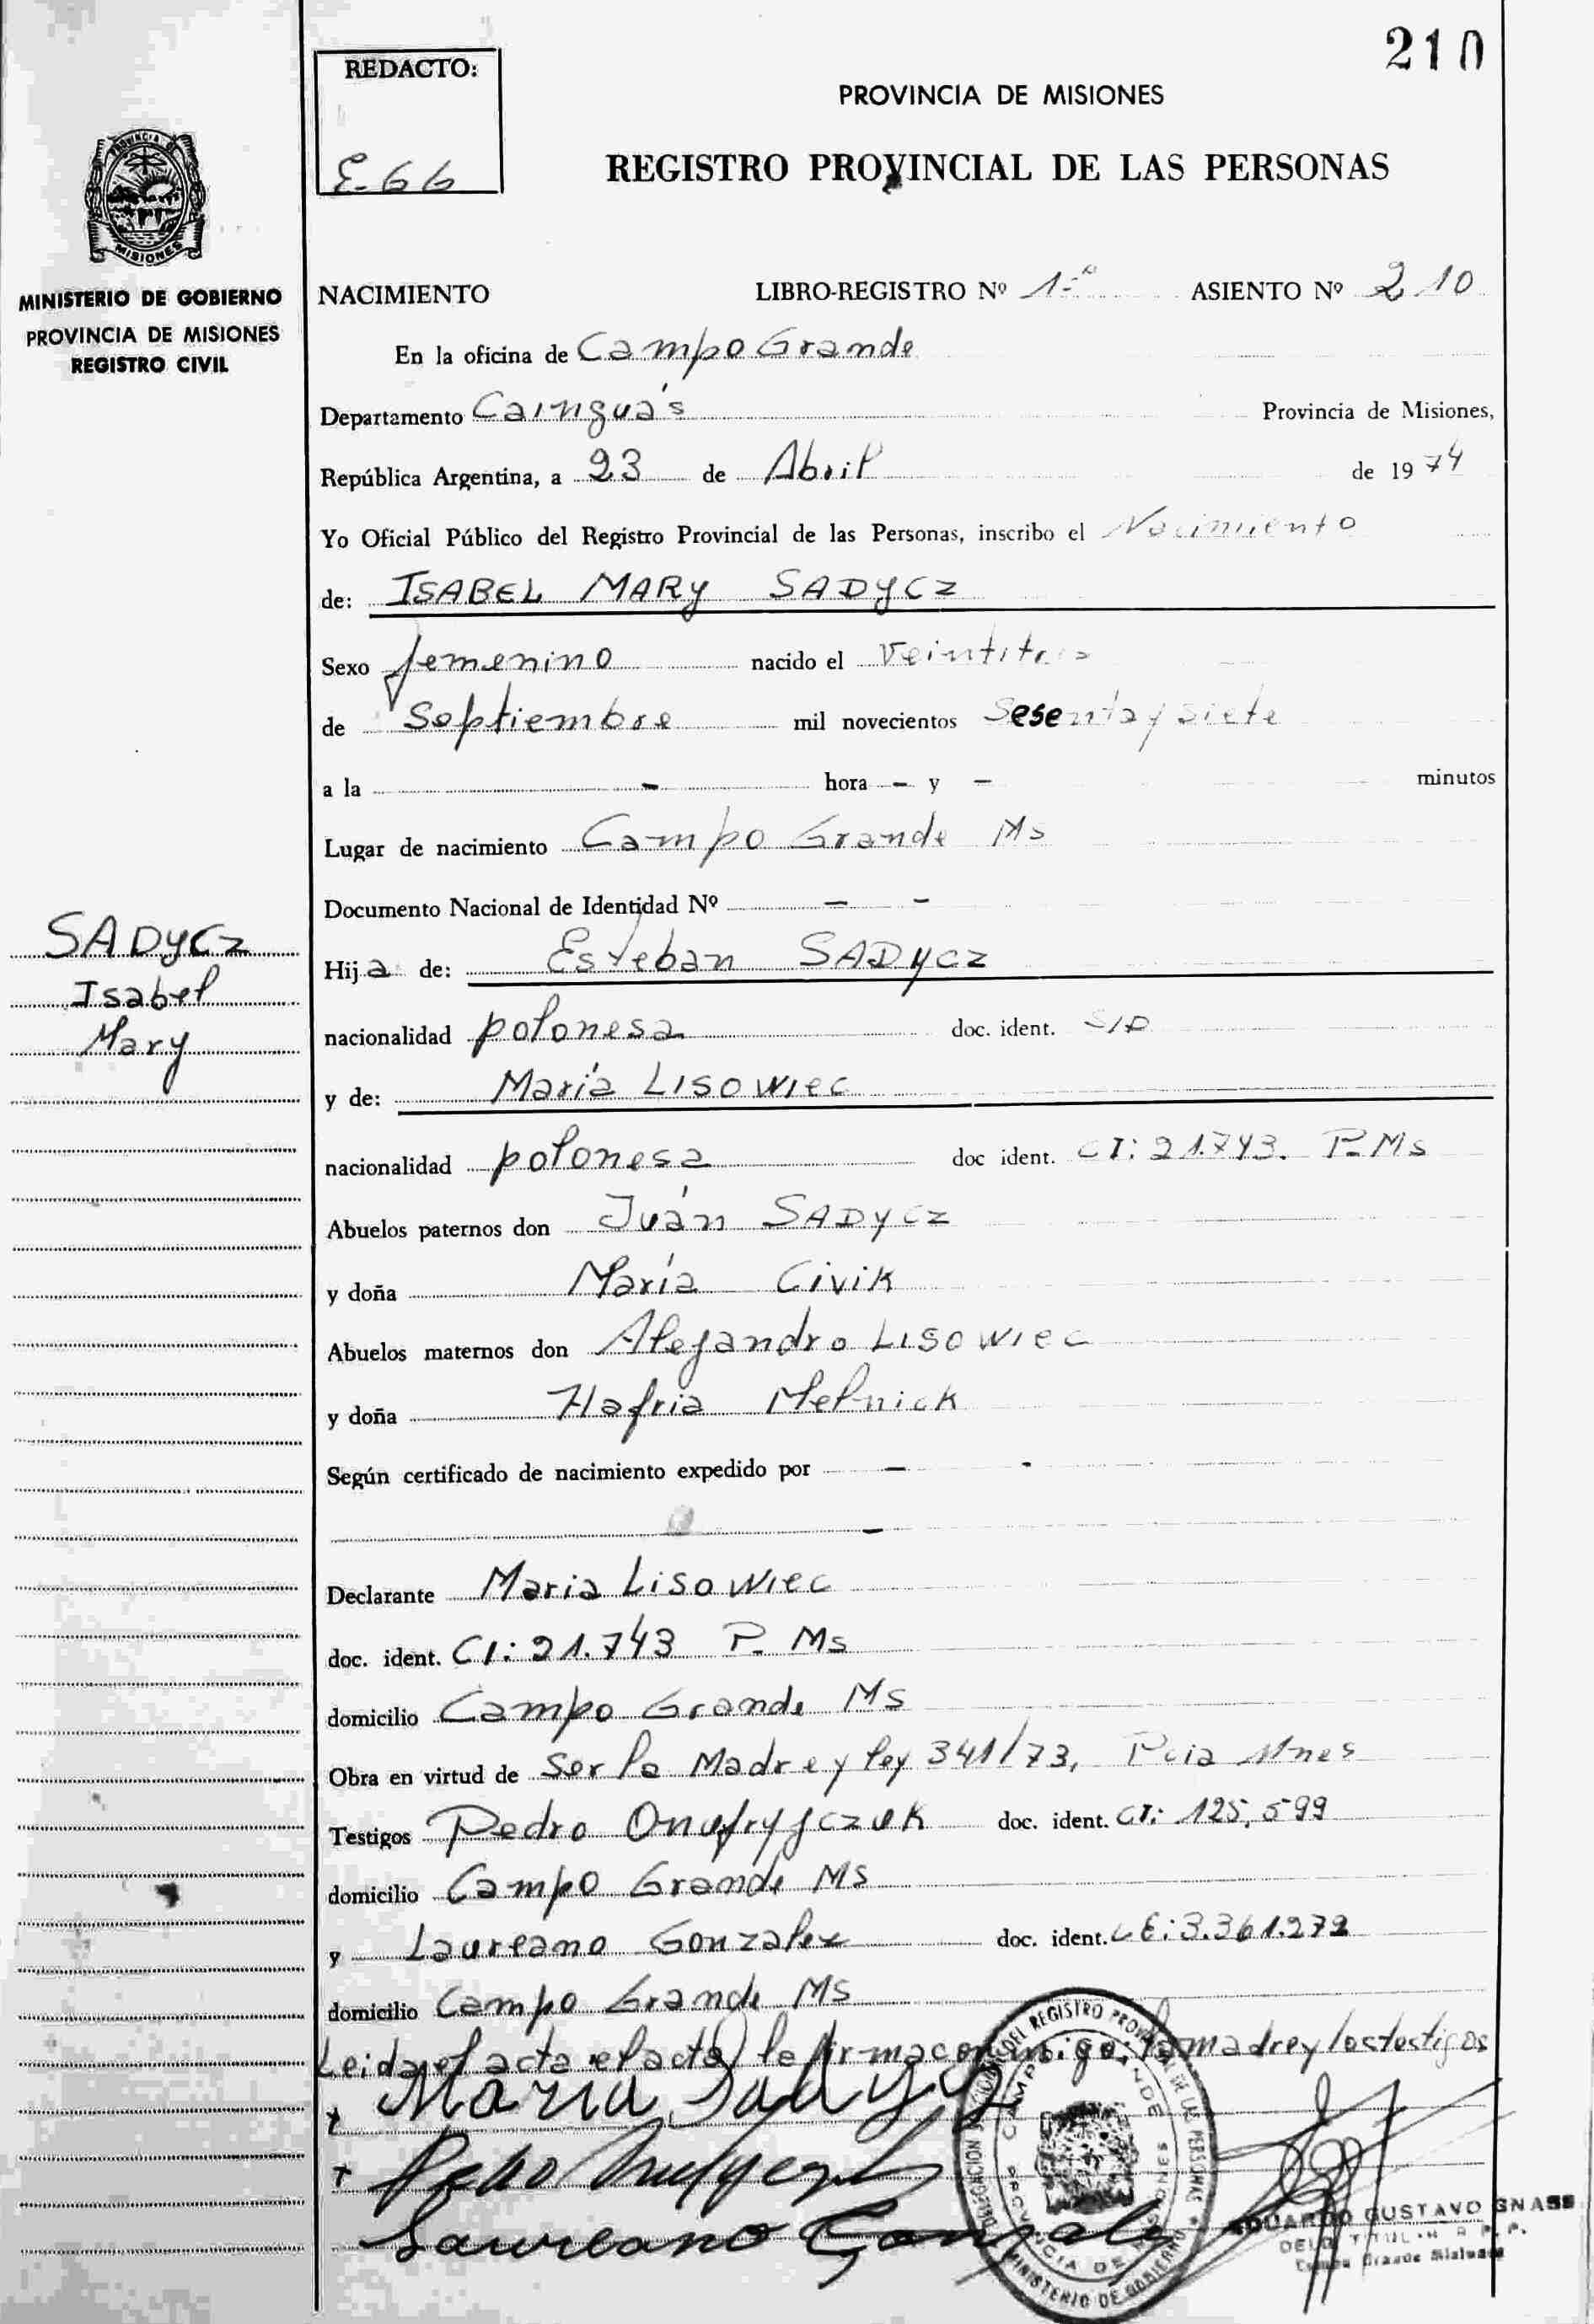 210
REDACTO:
E-66
PROVINCIA DE MISIONES
REGISTRO PROVINCIAL DE LAS PERSONAS
PROVINCIA DE
MISIONES
MINISTERIO DE GOBIERNO
PROVINCIA DE MISIONES
REGISTRO CIVIL
NACIMIENTO LIBRO-REGISTRO Nº 1-º ASIENTO Nº 210
En la oficina de Campo Grande
Departamento Cainguás Provincia de Misiones,
República Argentina, a 23 de Abril de 1974
Yo Oficial Público del Registro Provincial de las Personas, inscribo el Nacimiento
de: ISABEL MARY SADYCZ
Sexo femenino nacido el Veintitres
de Septiembre mil novecientos Sesenta y siete
a la - hora - y - minutos
Lugar de nacimiento Campo Grande Ms
Documento Nacional de Identidad Nº - -
SADYCZ
Isabel
Mary
Hija de: Esteban SADYCZ
nacionalidad polonesa doc. ident. S/D
y de: María LISOWIEC
nacionalidad polonesa doc ident. CI: 21.743. P.Ms
Abuelos paternos don Juán SADYCZ
y doña María Civik
Abuelos maternos don Alejandro LISOWIEC
y doña Hafria Melnick
Según certificado de nacimiento expedido por - -
-
Declarante Maria LisoWiec
doc. ident. CI: 21.743 P. Ms
domicilio Campo Grande Ms
Obra en virtud de Ser la Madre y ley 341/73, Pcia Mnes
Testigos Pedro Onufryjczuk doc. ident. CI: 125,599
domicilio Campo Grande Ms
y Laureano Gonzalez doc. ident. LE: 3.361.272
domicilio Campo Grande Ms
Leida el acta el acta) la firma conmigo, la madre y los testigos
María Sadycz
Pedro
Laureano Gonzalez
CAMPO GRANDE
PROVINCIA DE MISIONES
MINISTERIO DE GOBIERNO
EDUARDO GUSTAVO GNASS
DELEG. TITULAR R.P.P.
Campo Grande Misiones